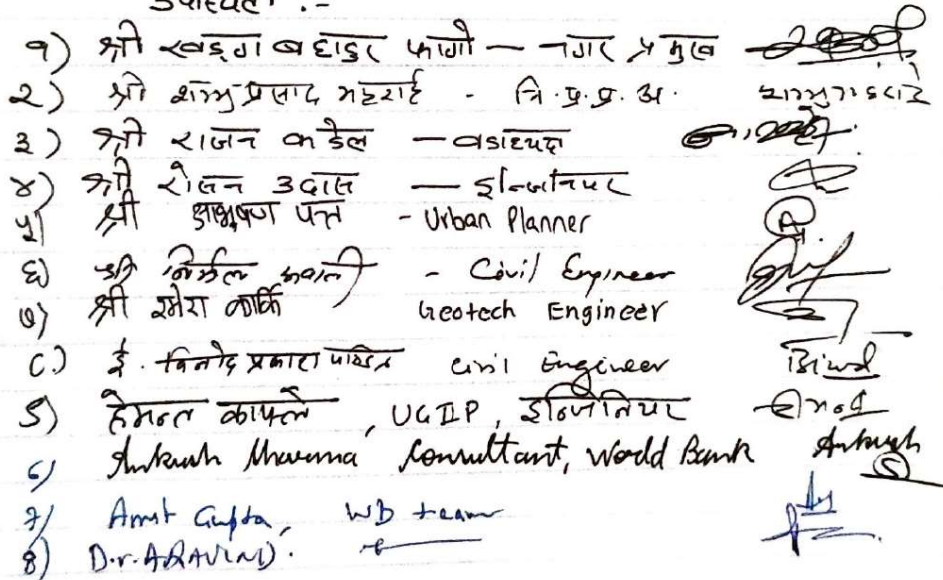 उपस्थिती :-
१) श्री खड्ग बहादुर फागो — नगर प्रमुख
२) श्री शम्भु प्रसाद भट्टराई - नि. प्र. प्र. अ.
३) श्री राजन कडेल — वडाध्यक्ष
४) श्री रोसन उदास — इन्जिनियर
५) श्री आभुषण पन्त - Urban Planner
६) श्री निर्मल - Civil Engineer
७) श्री रमेश कार्कि Geotech Engineer
८) ई. विनोद प्रकाश पण्डित Civil Engineer Binod
९) हेमन्त काफ्ले, UGIIP, इन्जिनियर
6) Ankush Consultant, World Bank Ankush
7) Amit Gupta, WD team
8) D.r. ARAVIND.